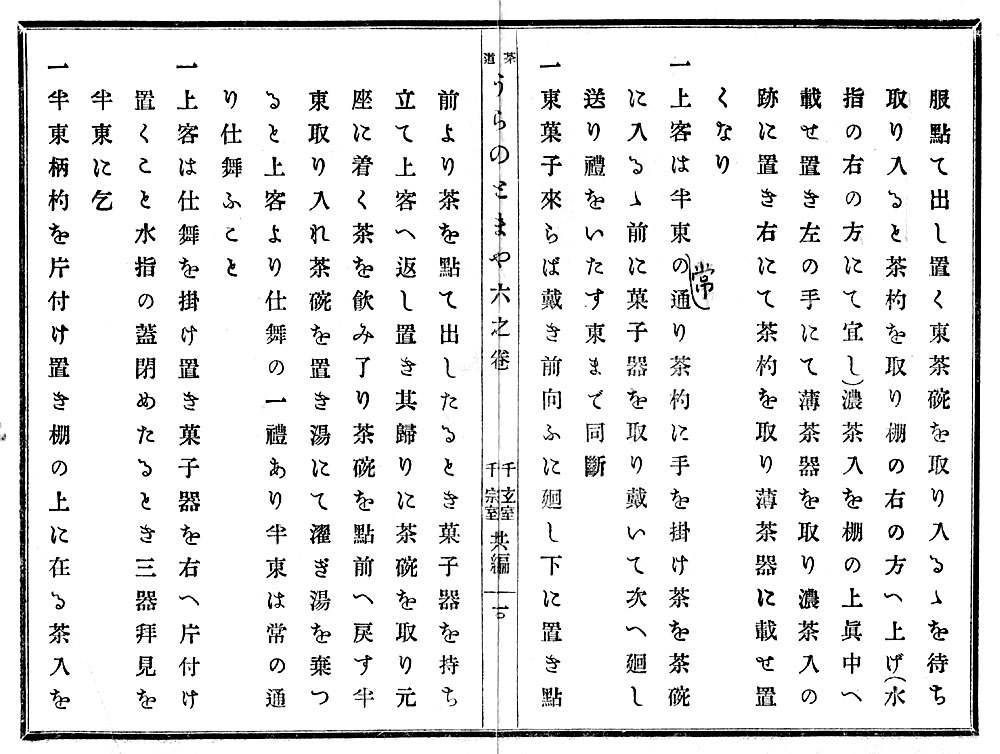 服點て出し置く東茶碗を取り入るゝを待ち
取り入ると茶杓を取り棚の右の方へ上げ(水
指の右の方にて宜し)濃茶入を棚の上眞中へ
載せ置き左の手にて薄茶器を取り濃茶入の
跡に置き右にて茶杓を取り薄茶器に載せ置
くなり
一上客は半東の通り茶杓に手を掛け茶を茶碗
常
に入るゝ前に菓子器を取り戴いて次へ廻し
送り禮をいたす東まで同斷
一東菓子來らば戴き前向ふに廻し下に置き點
茶道
うらのとまや六之卷
千玄室
千宗室
共編
前より茶を點て出したるとき菓子器を持ち
立て上客へ返し置き其歸りに茶碗を取り元
座に着く茶を飮み了り茶碗を點前へ戻す半
東取り入れ茶碗を置き湯にて濯ぎ湯を棄つ
ると上客より仕舞の一禮あり半東は常の通
り仕舞ふこと
一上客は仕舞を掛け置き菓子器を右へ片付け
置くこと水指の蓋閉めたるとき三器拜見を
半東に乞
一半東柄杓を片付け置き棚の上に在る茶入を